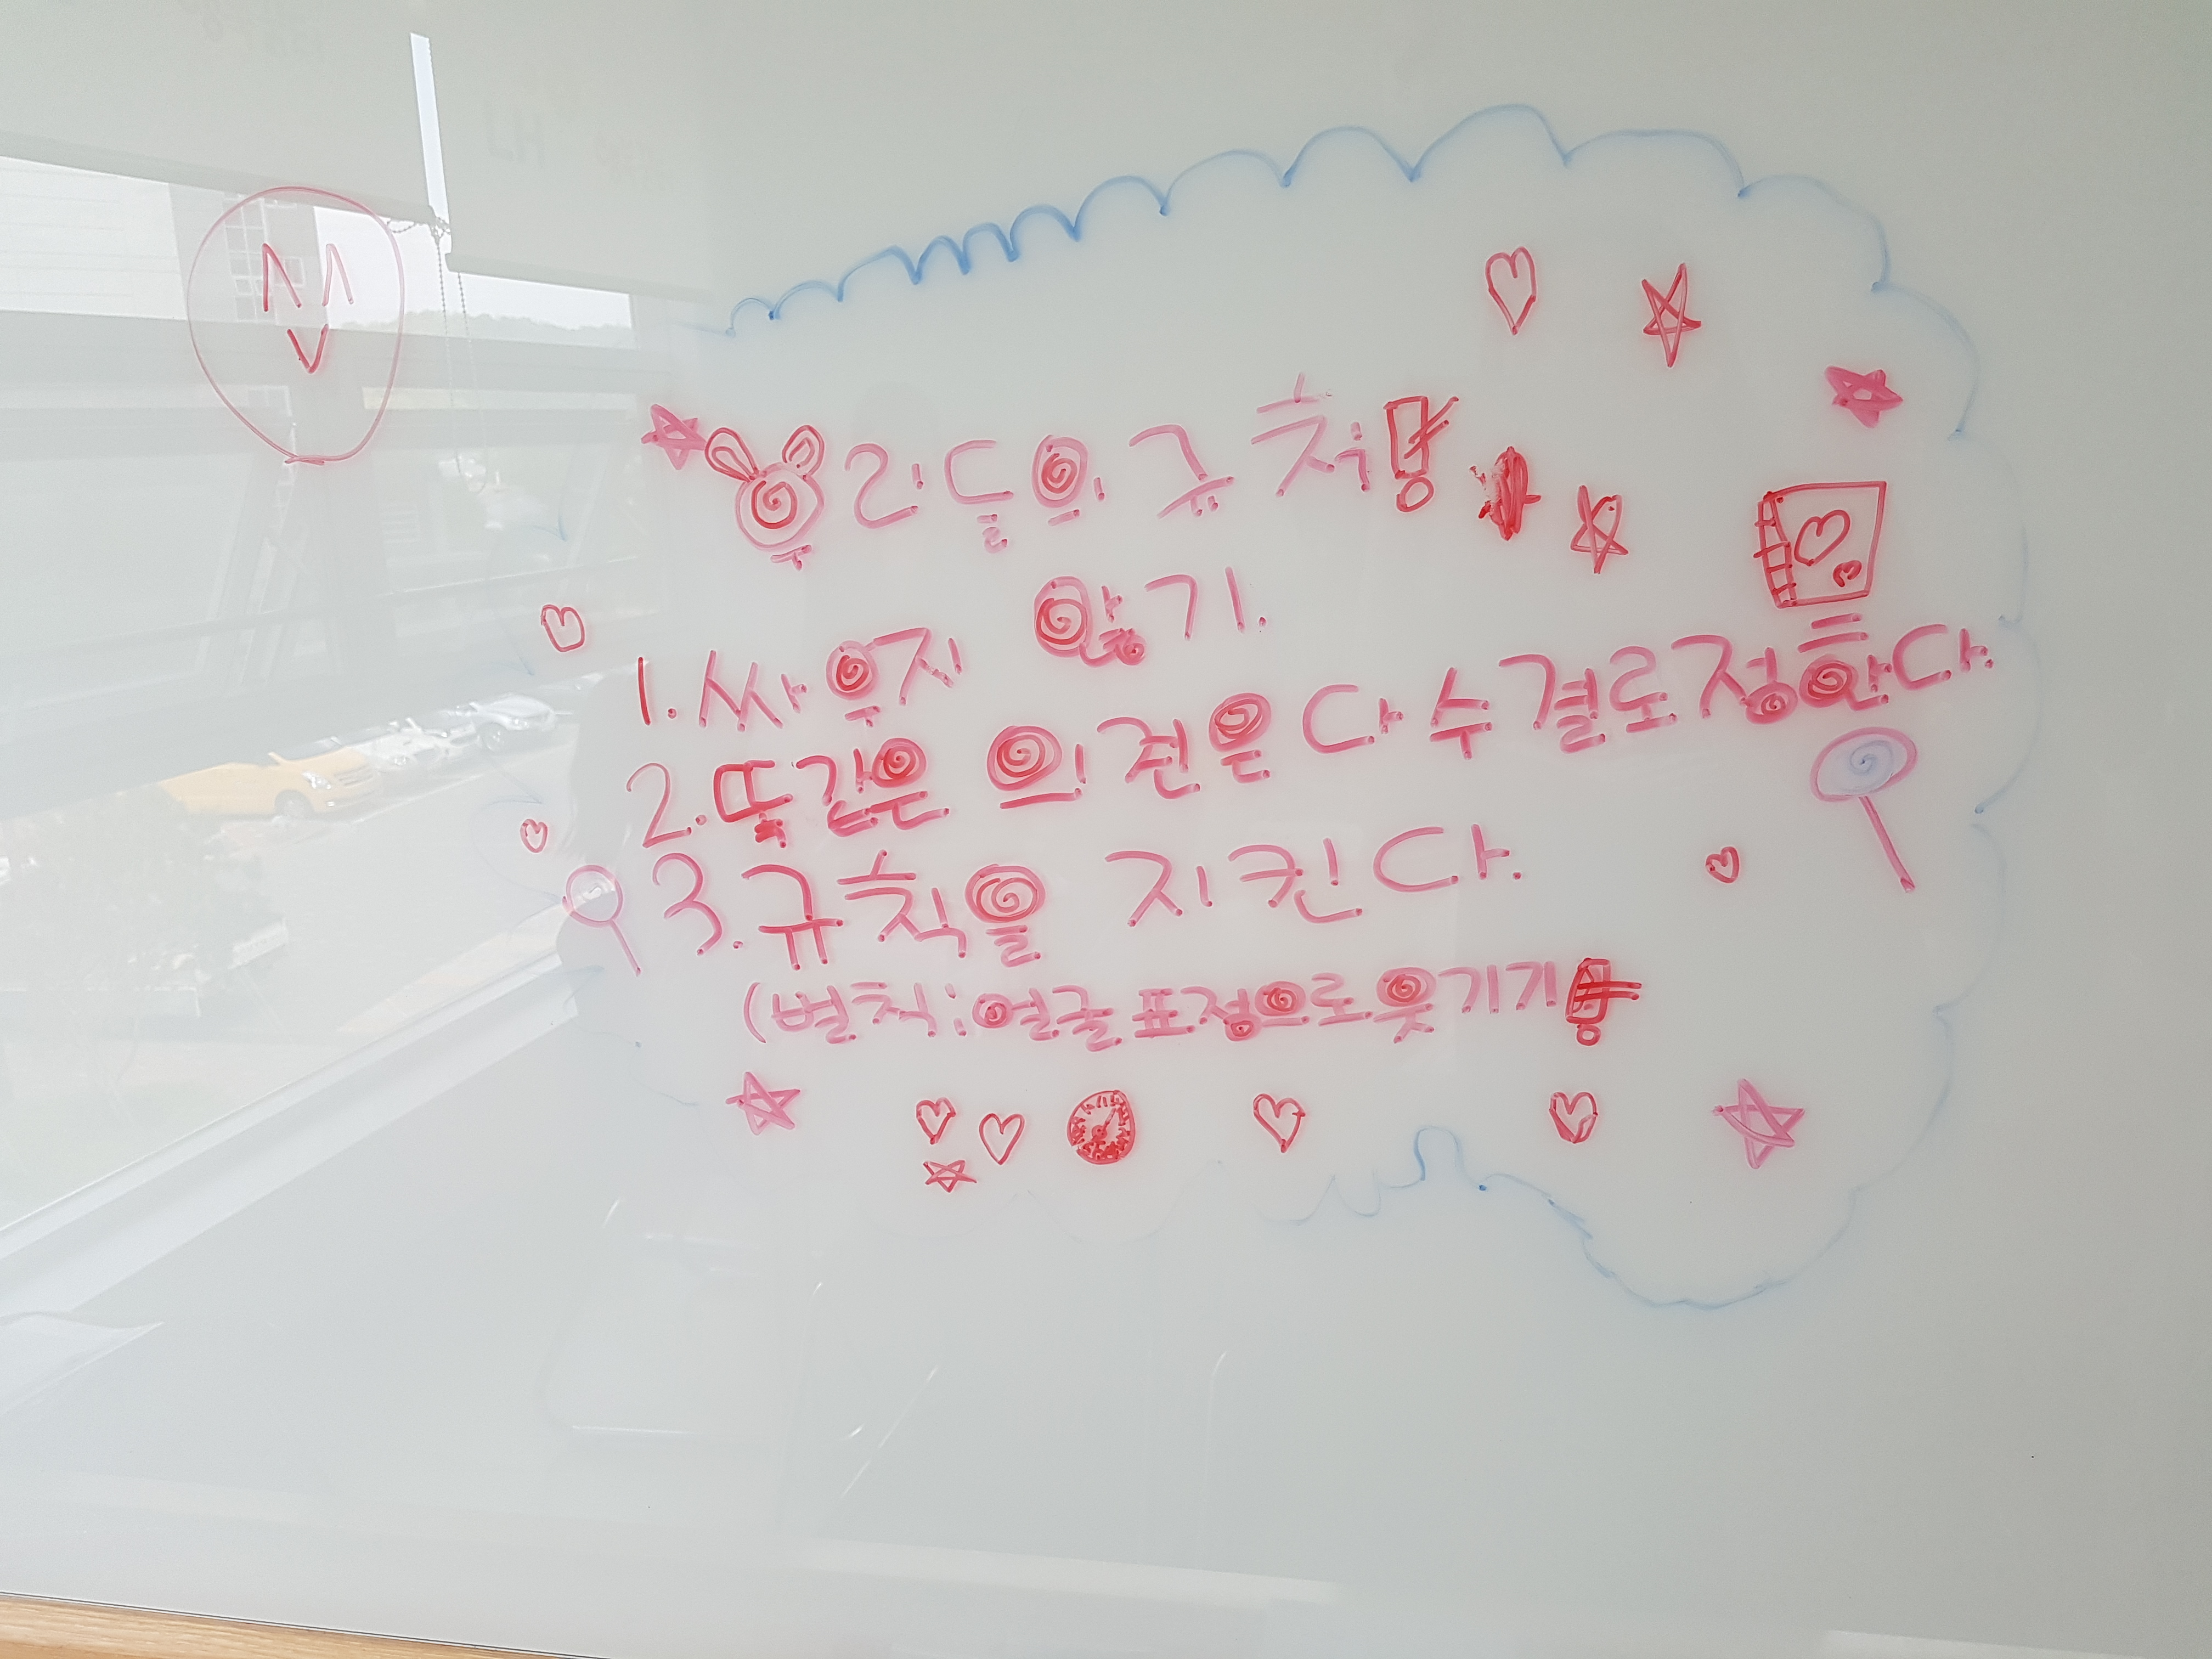 우리들의 규칙!
1. 싸우지 않기.
2. 똑같은 의견은 다수결로 정한다.
3. 규칙을 지킨다.
(벌칙: 얼굴 표정으로 웃기기!